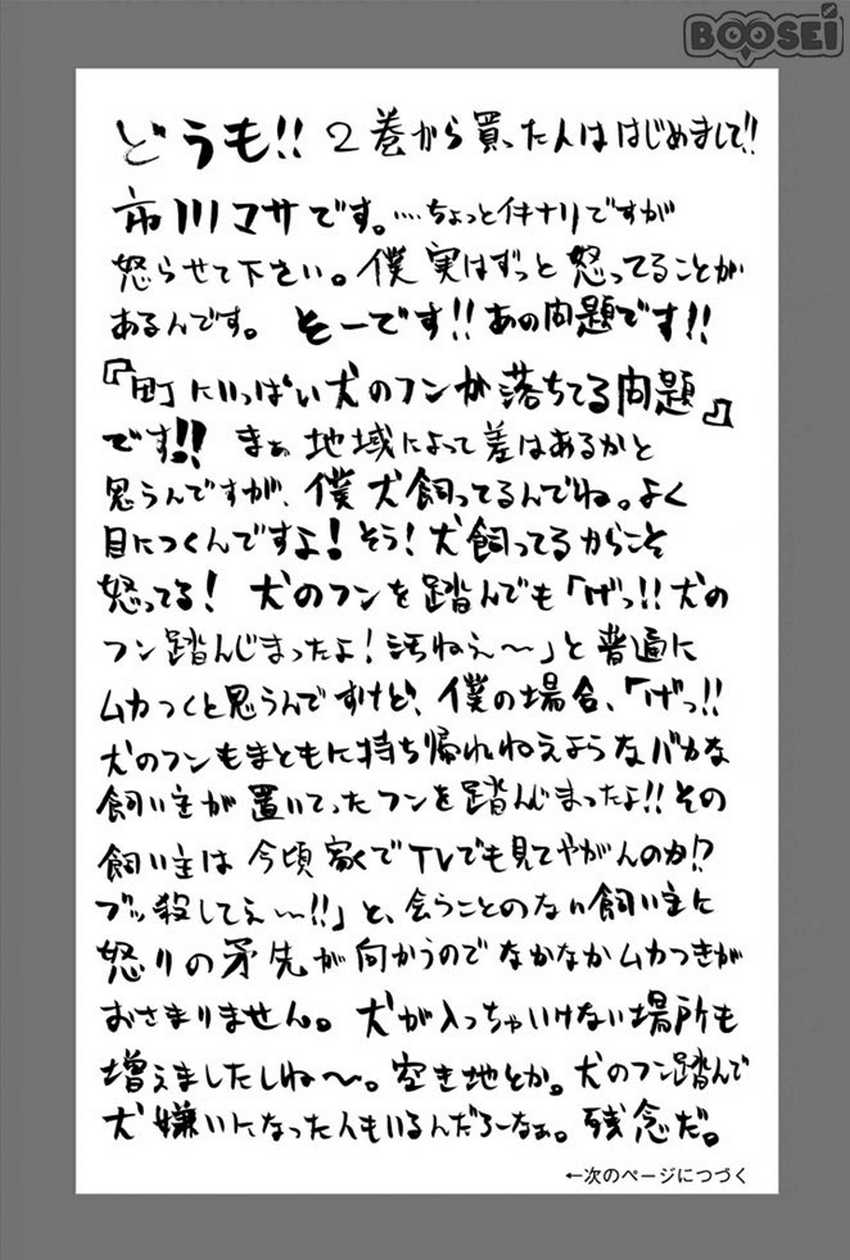 BOOSEI
どうも!! 2巻から買った人ははじめまして!!
市川マサです。‥‥ちょっとイキナリですが
怒らせて下さい。僕実はずっと怒ってることが
あるんです。そーです!!あの問題です!!
『町にいっぱい犬のフンが落ちてる問題』
です!! まぁ地域によって差はあるかと
思うんですが、僕犬飼ってるんでね。よく
目につくんですよ!そう!犬飼ってるからこそ
怒ってる! 犬のフンを踏んでも「げっ!!犬の
フン踏んじまったよ!汚ねぇ〜」と普遍に
ムカつくと思うんですけど、僕の場合、「げっ!!
犬のフンもまともに持ち帰れねえようなバカな
飼い主が置いてったフンを踏んじまったよ!!その
飼い主は今頃家でTVでも見てやがんのか!?
ブッ殺してえ〜!!」と、会うことのない飼い主に
怒りの矛先が向かうのでなかなかムカつきが
おさまりません。犬が入っちゃいけない場所も
増えましたしね〜。空き地とか。犬のフン踏んで
犬嫌いになった人もいるんだろーなぁ。残念だ。
←次のページにつづく